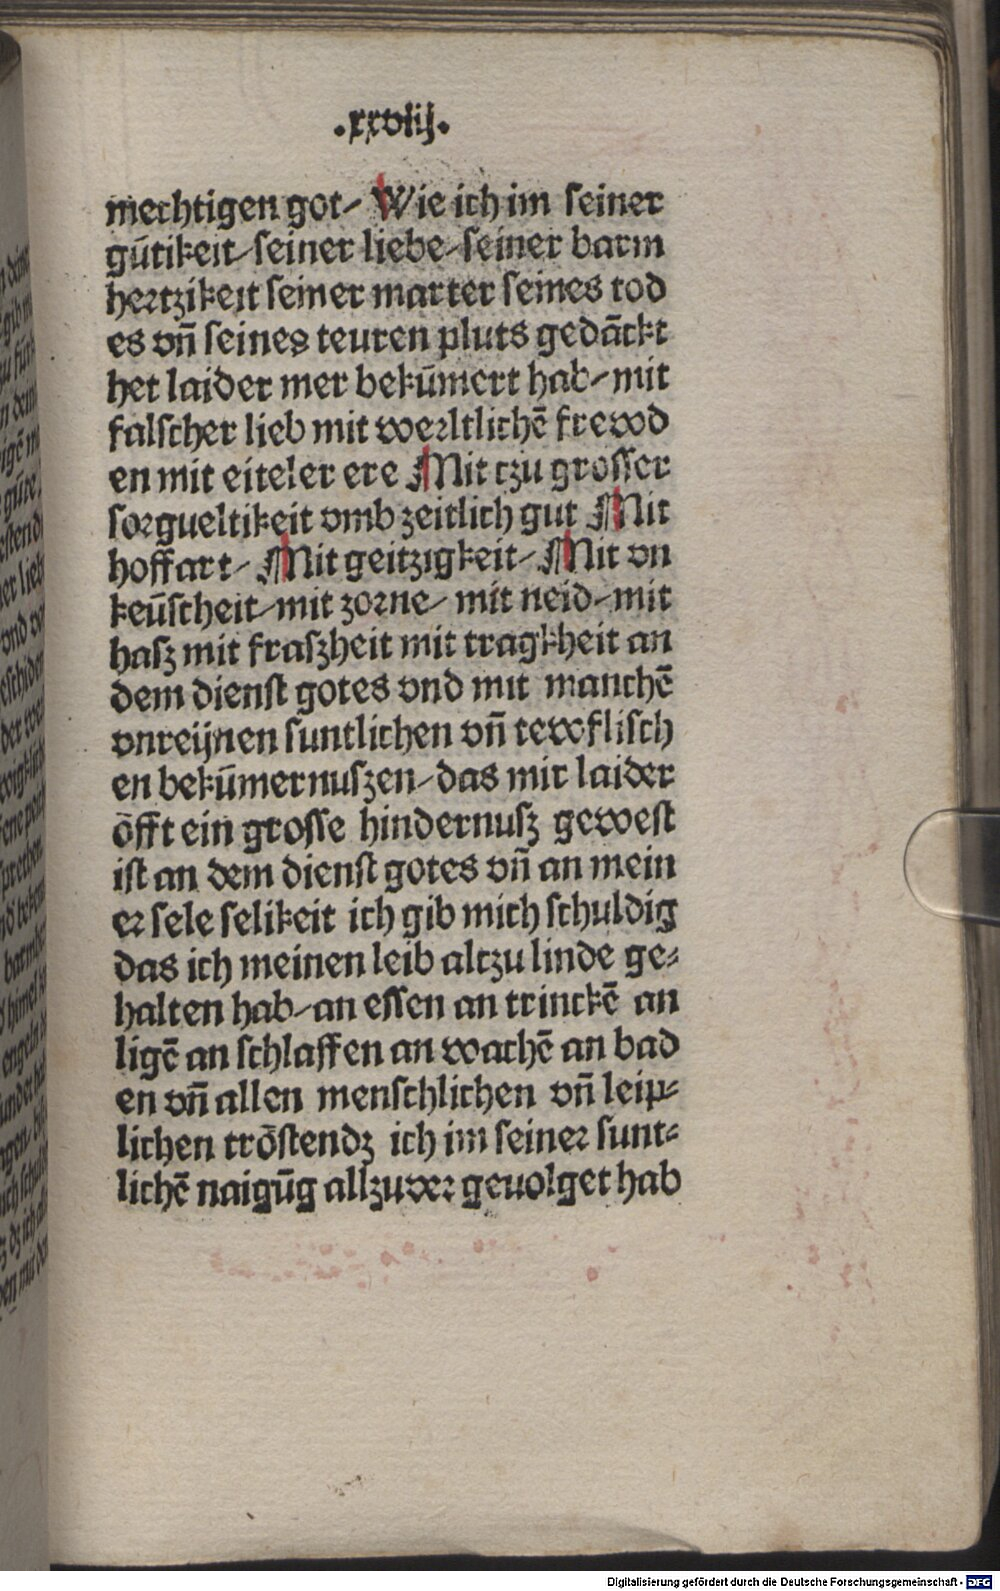 .xxviij.
mechtigen got⸗ Wie ich im seiner
gūtikeit⸗seiner liebe⸗seiner barm
hertzikeit seiner marter seines tod
es vn̄ seines teuren pluts gedāckt
het laider mer bekūmert hab⸗mit
falscher lieb mit werltlichē frewd
en mit eiteler ere Mit tzu grosser
sorgueltikeit vmb zeitlich gut Mit
hoffart⸗ Mit geitzigkeit⸗ Mit vn
keūscheit⸗mit zorne⸗ mit neid⸗mit
hasz mit fraszheit mit tragkheit an
dem dienst gotes vnd mit manchē
vnreijnen suntlichen vn̄ tewflisch
en bekūmernuszen⸗das mir laider
ōfft ein grosse hindernusz gewest
ist an dem dienst gotes vn̄ an mein
er sele selikeit ich gib mich schuldig
das ich meinen leib altzu linde ge⸗
halten hab⸗an essen an trinckē an
ligē an schlaffen an wachē an bad
en vn̄ allen menschlichen vn̄ leip⸗
lichen trōstendz ich im seiner sunt⸗
lichē naigūg allzuver geuolget hab
Digitalisierung gefördert durch die Deutsche Forschungsgemeinschaft - DFG